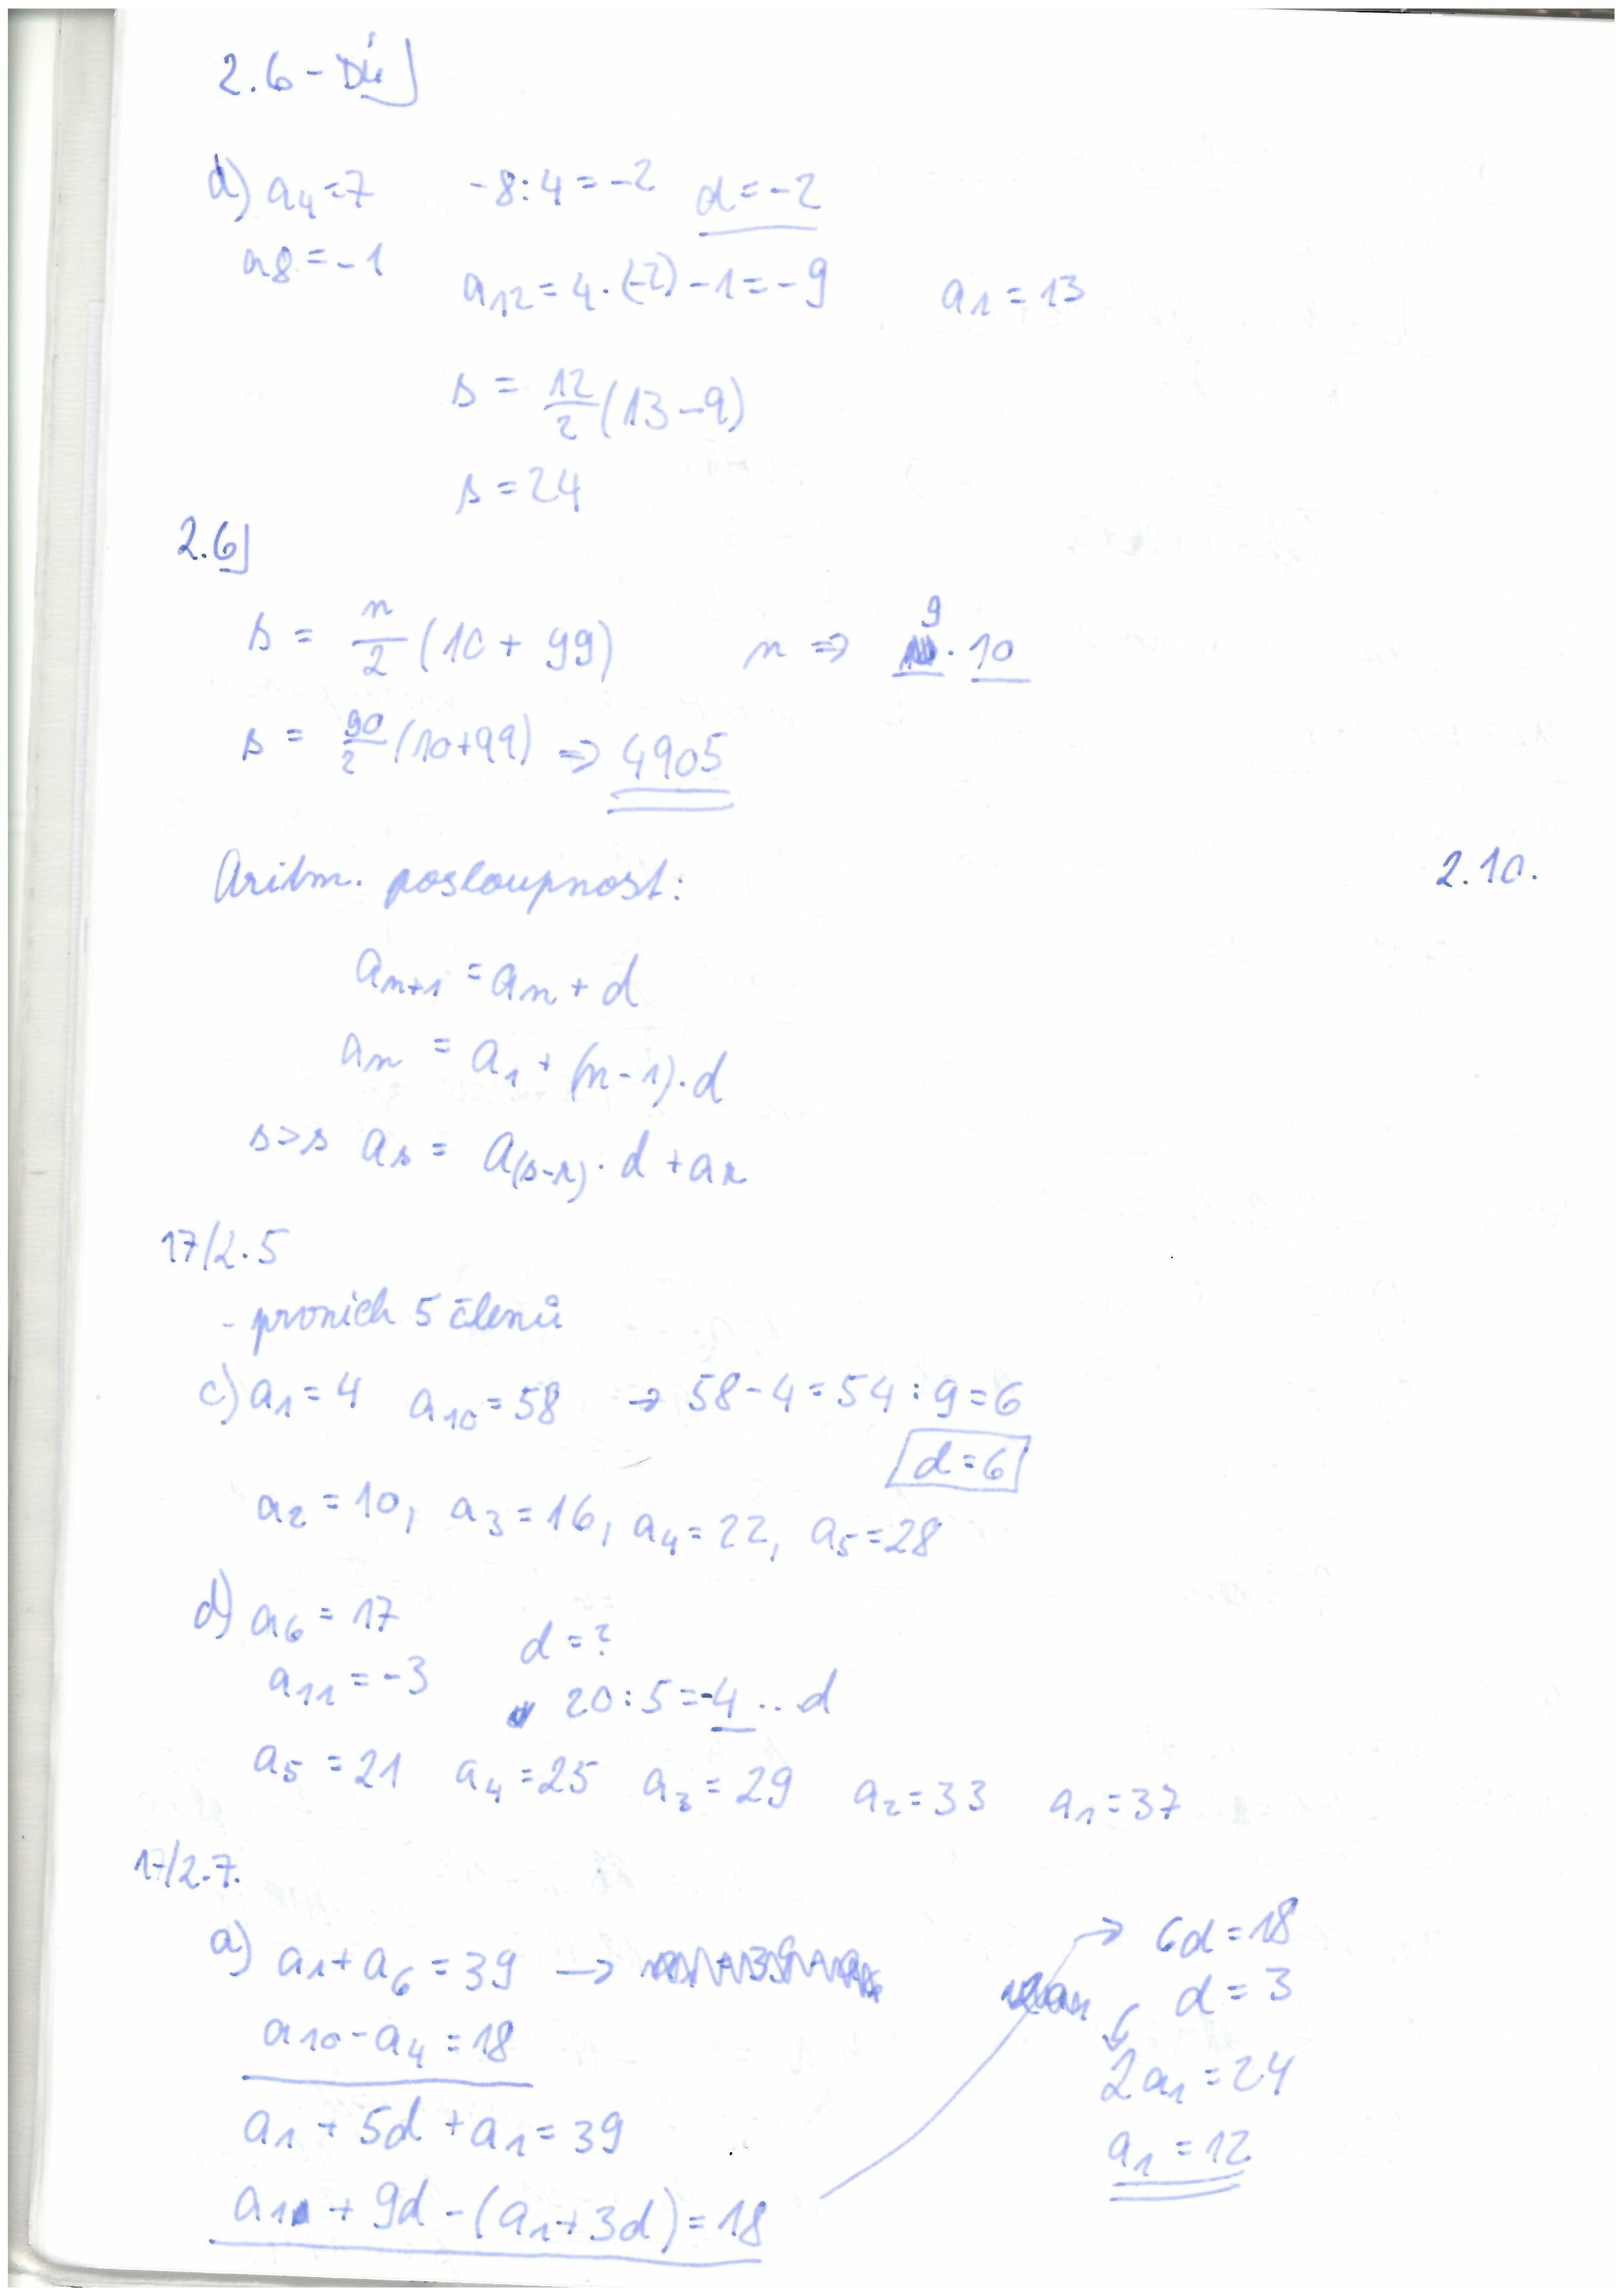 2.6 - DÚ
d) a4 = 7   -8 : 4 = -2   d = -2
a8 = -1
a12 = 4 · (-2) - 1 = -9   a1 = 13
s = 12/2 (13 - 9)
s = 24
2.6
s = n/2 (10 + 99)   n ⇒ 9 · 10
s = 90/2 (10 + 99) ⇒ 4905
Aritm. posloupnost:   2.10.
an+1 = an + d
an = a1 + (n - 1) · d
s > s   as = a(s-r) · d + ar
17/2.5
- prvních 5 členů
c) a1 = 4   a10 = 58   → 58 - 4 = 54 : 9 = 6
d = 6
a2 = 10, a3 = 16, a4 = 22, a5 = 28
d) a6 = 17   d = ?
a11 = -3   20 : 5 = -4 .. d
a5 = 21   a4 = 25   a3 = 29   a2 = 33   a1 = 37
17/2.7.
a) a1 + a6 = 39 →
a10 - a4 = 18
a1 + 5d + a1 = 39
a1 + 9d - (a1 + 3d) = 18
→ 6d = 18
d = 3
2a1 = 24
a1 = 12